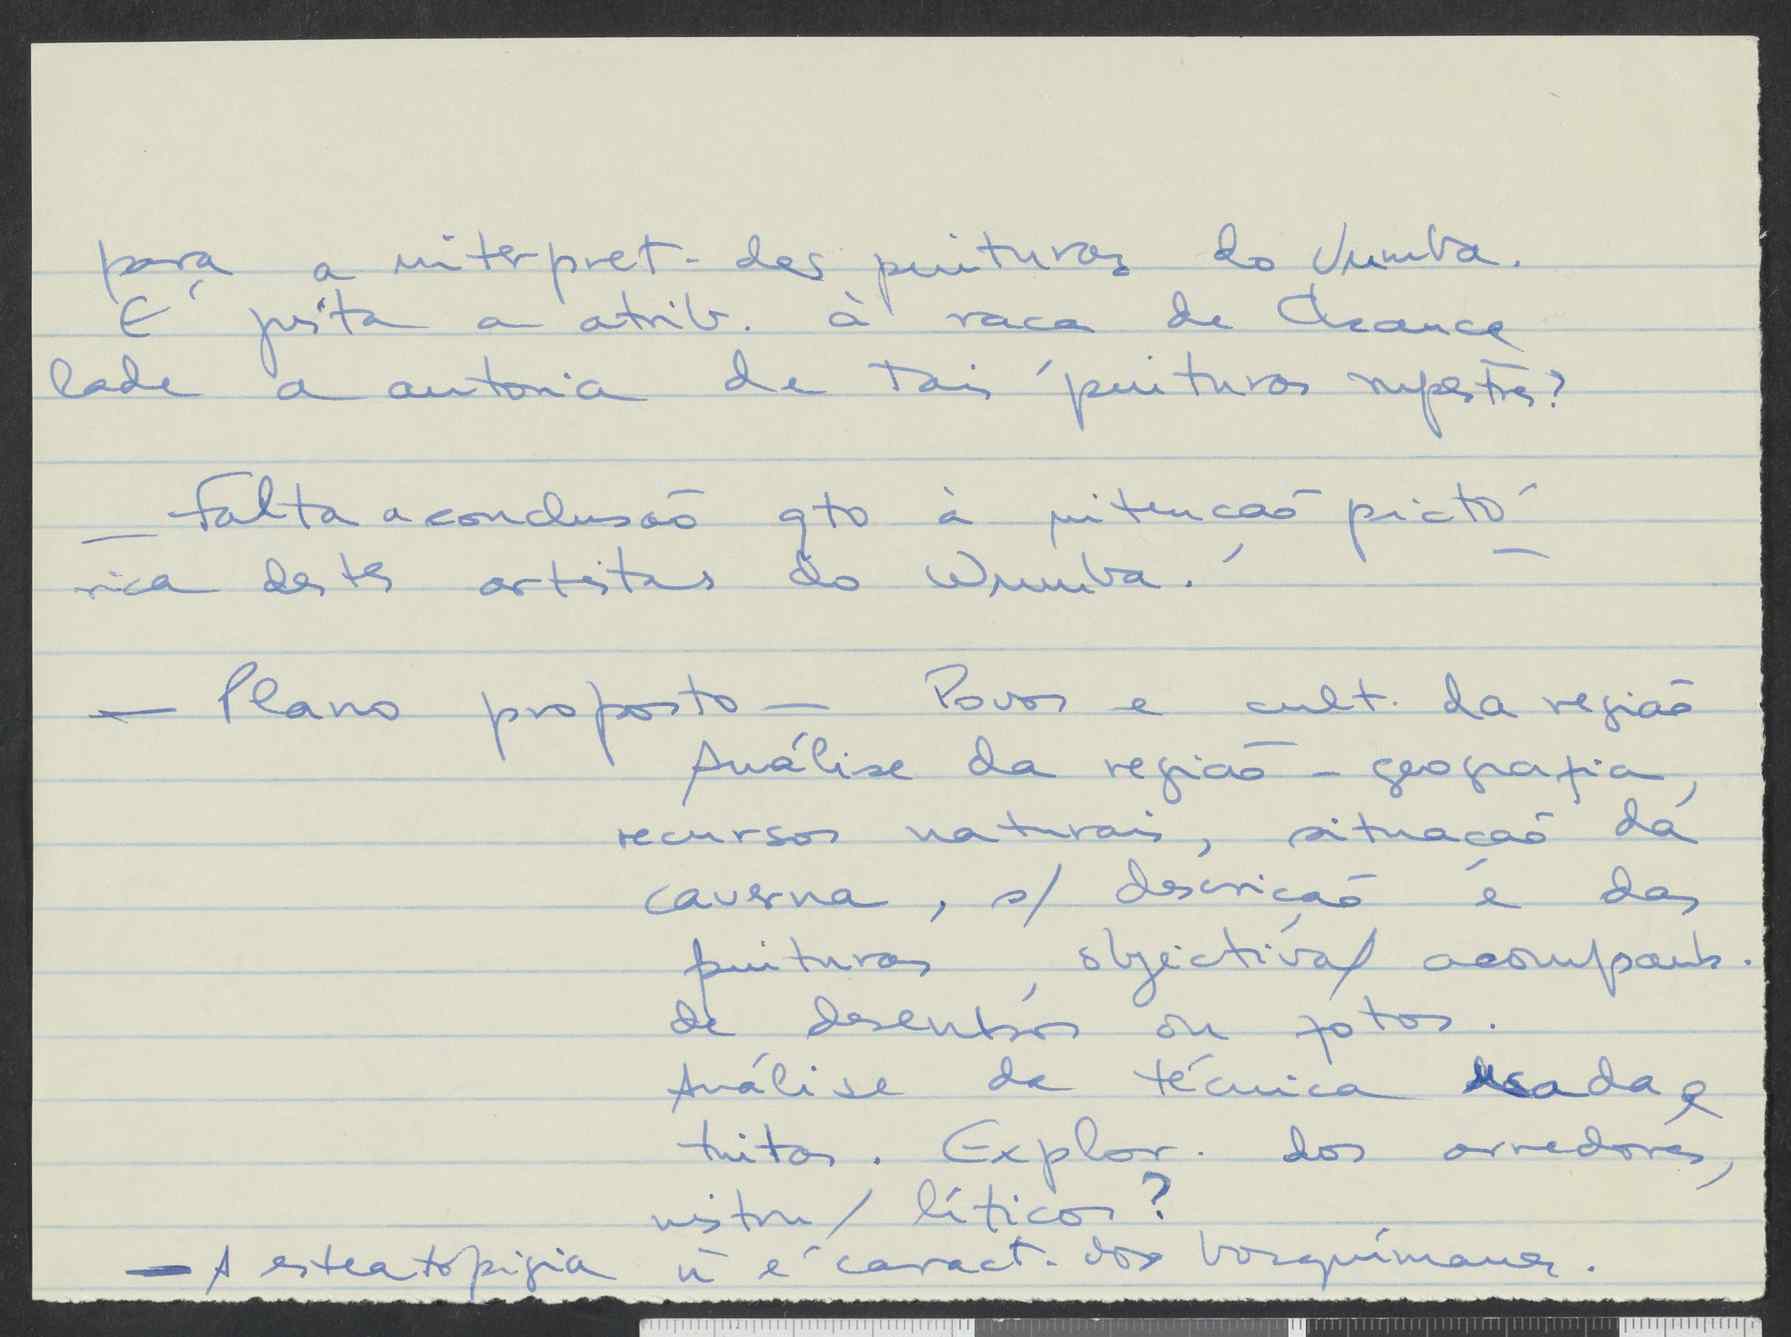 para a interpret. das pinturas do Vumba.
É justa a atrib. à raça de Chance
lade a autoria de tais pinturas rupestres?
— Falta a conclusão qto à intenção pictó
rica destes artistas do Wumba.
— Plano proposto — Povos e cult. da região
Análise da região - geografia,
recursos naturais, situação da
caverna, s/ descrição e das
pinturas, objectiva/ acompanh.
de desenhos ou fotos.
Análise da técnica usada e
tintas. Explor. dos arredores,
instru/ líticos?
— A esteatopigia ñ é caract. dos bosquímanes.